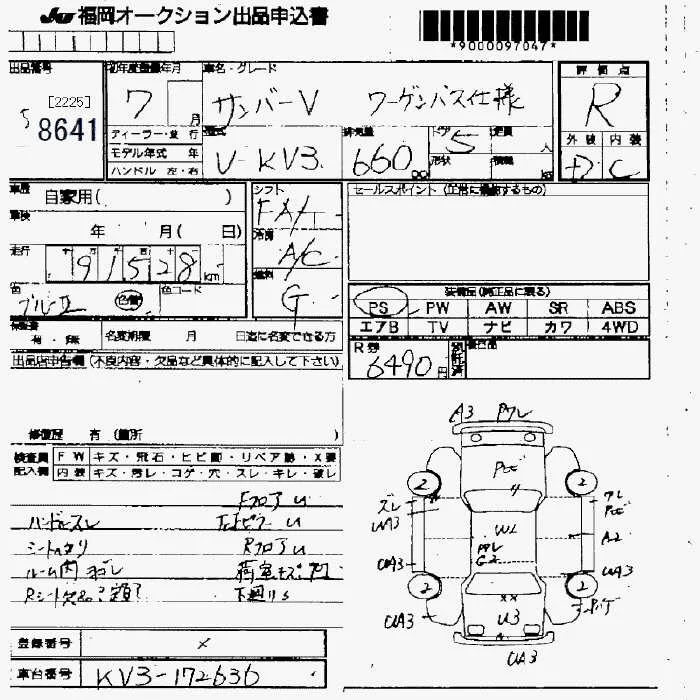 JU 福岡オークション出品申込書
*9000097047*
出品番号
[2225]
5 8641
初年度登録年月
7 月
車名・グレード
サンバーV ワーゲンバス仕様
評価点
R
外装 内装
D C
ディーラー・並行
モデル年式 年
ハンドル 左・右
型式
V-KV3
排気量
660 cc
ドア
5
定員
人
形状
積載
kg
車歴
自家用( )
車検
年 月( 日)
走行
91528 km
色
ブルーII
色替
色コード
シフト
FA/
冷房
A/C
燃料
G
セールスポイント (正常に機能するもの)
装備品(純正品に限る)
PS PW AW SR ABS
エアB TV ナビ カワ 4WD
保証書
有・無
名変期限 月 日迄に名変できる方
R券
6490円
預託済
出品店申告欄(不良内容・欠品など具体的に記入して下さい)
修復歴 有(箇所 )
検査員記入欄
FW キズ・飛石・ヒビ割・リペア跡・X要
内装 キズ・汚レ・コゲ・穴・スレ・キレ・破レ
Fフロアu
ハンドルスレ
シートヘタリ
Rフロアu
ルーム内ヨゴレ
下廻りS
A3
2
2
ズレ
UA3
W2
A2
UA3
UA3
2
2
XX
U3
UA3
UA3
登録番号 ×
車台番号 KV3-172636